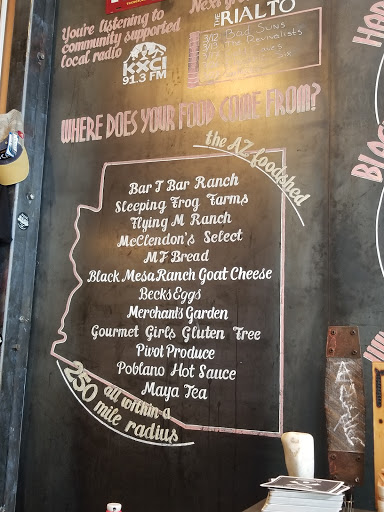 You're listening to
community supported
local radio
KXCI
91.3 FM
THE
RIALTO
3/12 Bad Suns
The Revivalists
WHERE DOES YOUR FOOD COME FROM?
the AZ foodshed
Bar T Bar Ranch
Sleeping Frog Farms
Flying M Ranch
McClendon's Select
MF Bread
Black Mesa Ranch Goat Cheese
Beck's Eggs
Merchant's Garden
Gourmet Girls Gluten Free
Pivot Produce
Poblano Hot Sauce
Maya Tea
all within a
250 mile radius